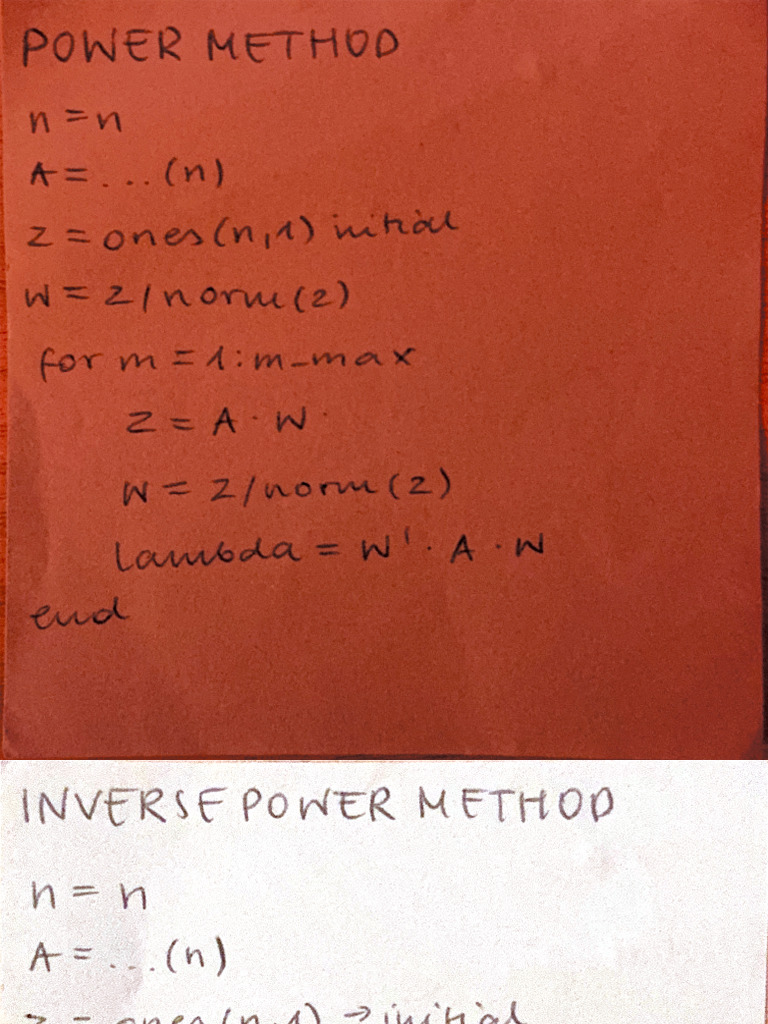 POWER METHOD
n = n
A = ... (n)
z = ones(n,1) initial
w = z/norm(z)
for m = 1:m_max
z = A · w
w = z/norm(z)
lambda = w' · A · w
end
INVERSE POWER METHOD
n = n
A = ... (n)
z = ones(n,1) → initial